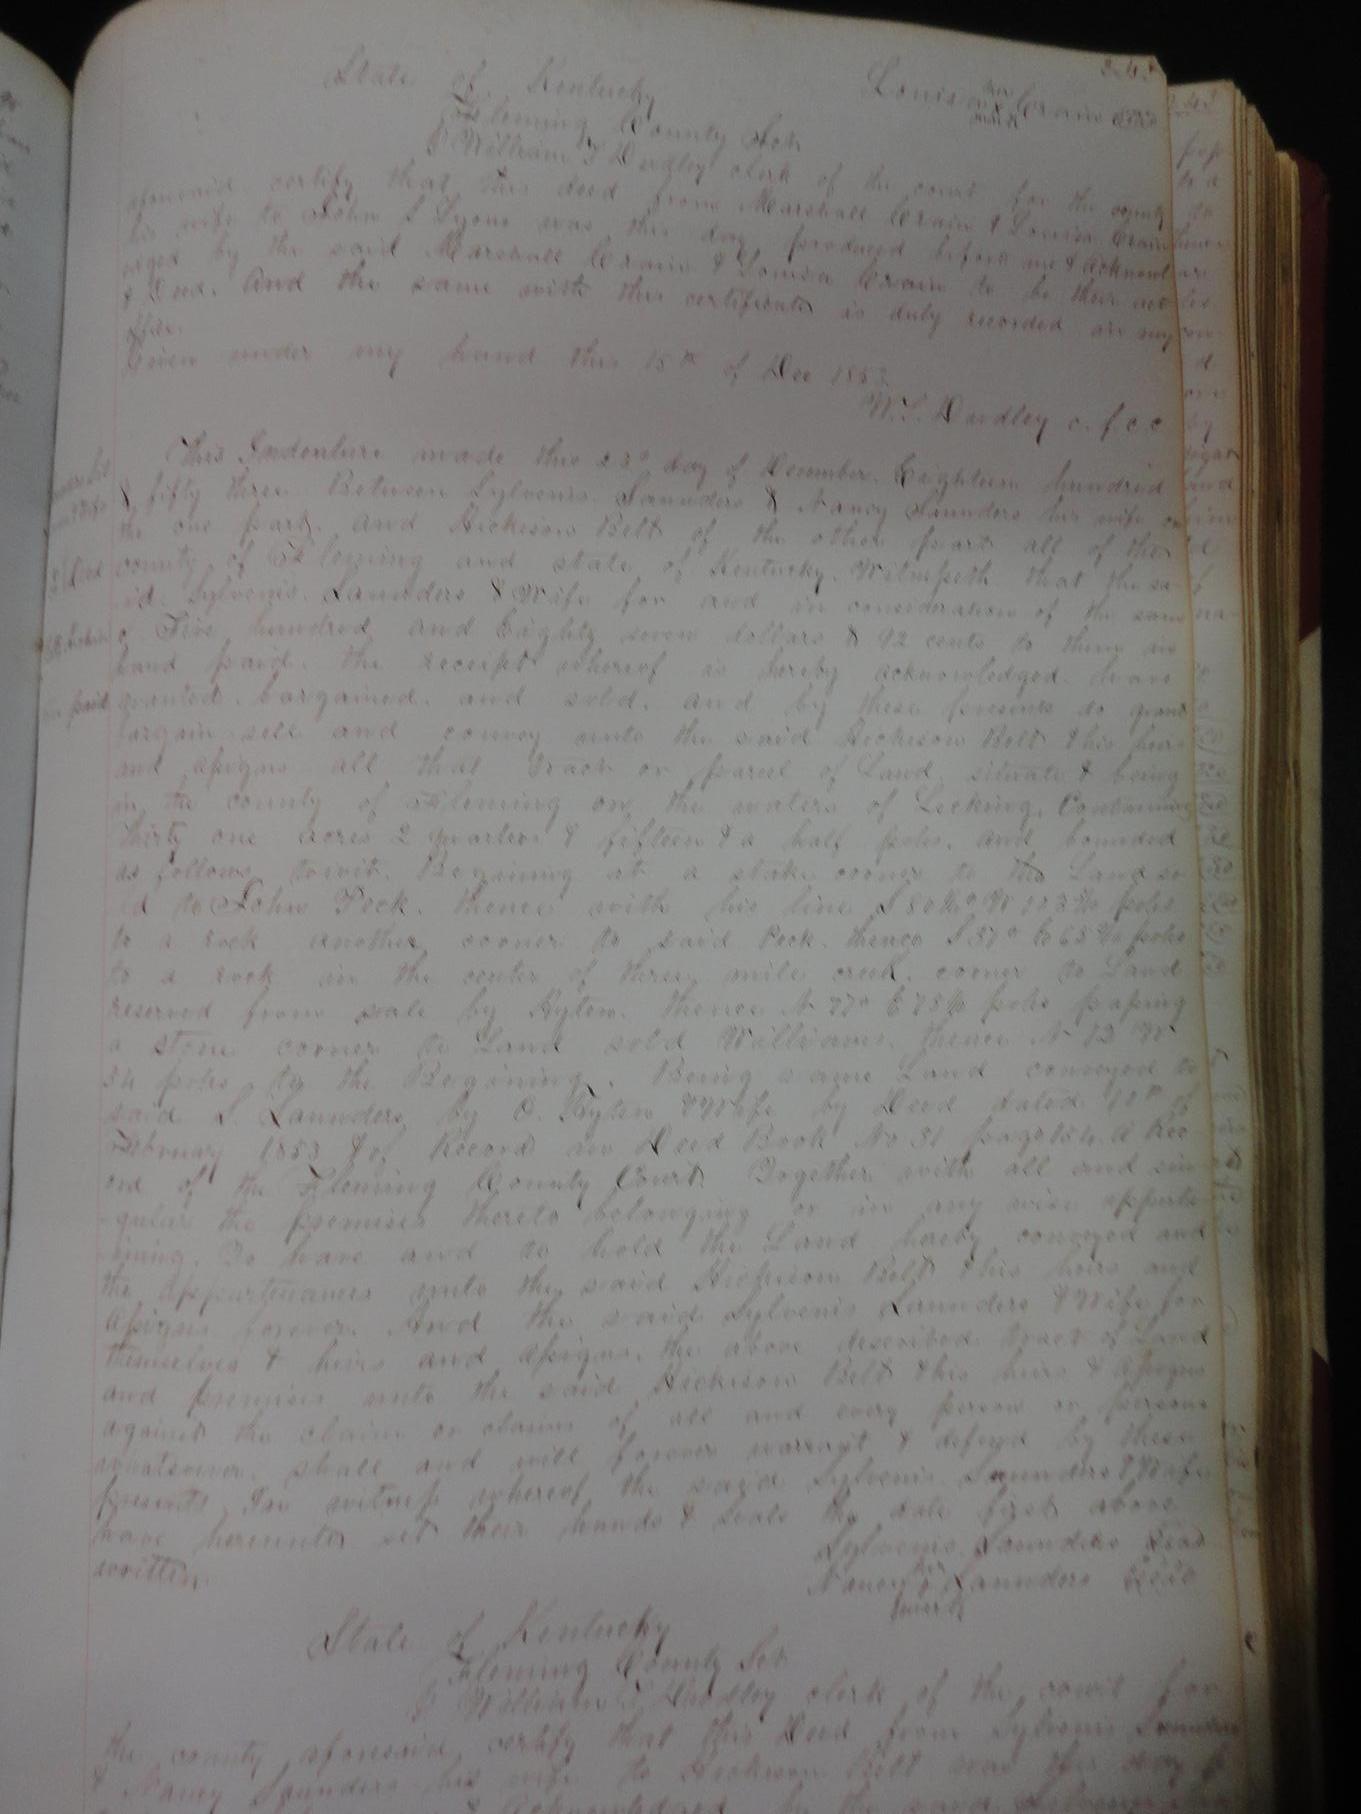 State of Kentucky
Louisa her mark Crain
Fleming County Sct
I William T Dudley clerk of the court for the county
aforesaid certify that this deed from Marshall Crain & Louisa Crain
his wife to John S Lyons was this day produced before me & acknowl
edged by the said Marshall Crain & Louisa Crain to be their act
& Deed. And the same with this certificate is duly recorded in my
office.
Given under my hand this 15th of Dec 1853
W. T. Dudley c.f.c.c
This Indenture made this 23d day of December. Eighteen hundred
& fifty three. Between Sylvenis Saunders & Nancy Saunders his wife of
the one part. and Hickison Belt of the other part all of the
county of Fleming and state of Kentucky. Witnesseth that the sa
id Sylvenis Saunders & Wife for and in consideration of the sum
of Five hundred and Eighty seven dollars & 92 cents to them in
hand paid. the receipt whereof is hereby acknowledged. have
granted. bargained. and sold. and by these presents do grant
bargain sell and convey unto the said Hickison Belt & his heirs
and assigns all that tract or parcel of Land situate & being
in the county of Fleming on the waters of Licking. Containing
thirty one acres 2 quarters & fifteen & a half poles. and bounded
as follows towit. Begining at a stake corner to the Land so
ld to John Peck. thence with his line poles
to a rock another corner to said Peck. thence S 37° E 65 poles
to a rock in the center of three mile creek. corner to Land
reserved from sale by Ryten. thence N 77° E 78 poles passing
a stone corner to Land sold Williams. thence N 13 W
34 poles to the Begining. Being same Land conveyed to
said S. Saunders by O. Ryten & Wife by Deed dated 10th of
February 1853 & of Record in Deed Book No 31 page 154. a Rec
ord of the Fleming County Court Together with all and sin
gular the premises thereto belonging or in any wise apperta
ining. To have and to hold the Land hereby conveyed and
the appurtenances unto the said Hickison Belt & his heirs and
assigns forever. And the said Sylvenis Saunders & Wife for
themselves & heirs and assigns. the above described tract of Land
and premises unto the said Hickison Belt & his heirs & assigns
against the claim or claims of all and every person or persons
whatsoever. shall and will forever warrant & defend by these
presents In witness whereof the said Sylvenis Saunders & Wife
have hereunto set their hands & seals the date first above
written.
Sylvenis Saunders Seal
Nancy her mark Saunders
State of Kentucky
Fleming County Sct
I William T. Dudley clerk of the court for
the county aforesaid certify that this Deed from Sylvenis Saunders
& Nancy Saunders his wife to Hickison Belt was this day
Acknowledged by the said